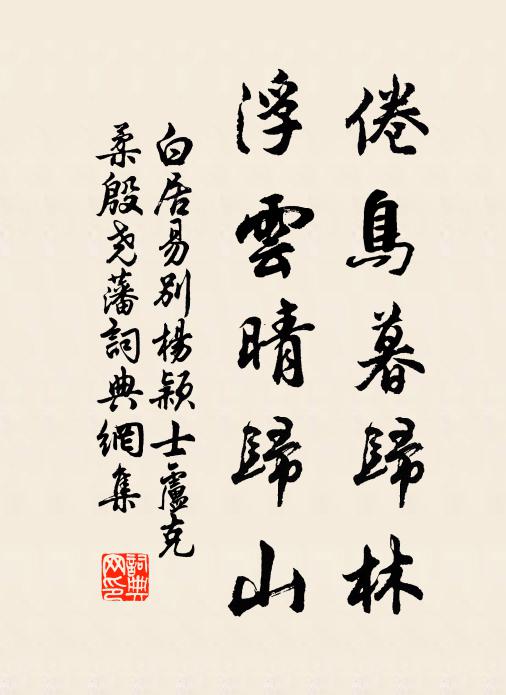 倦鳥暮歸林
浮雲晴歸山
白居易別楊穎士盧克
柔殷堯藩詞典網集
詞典
网印